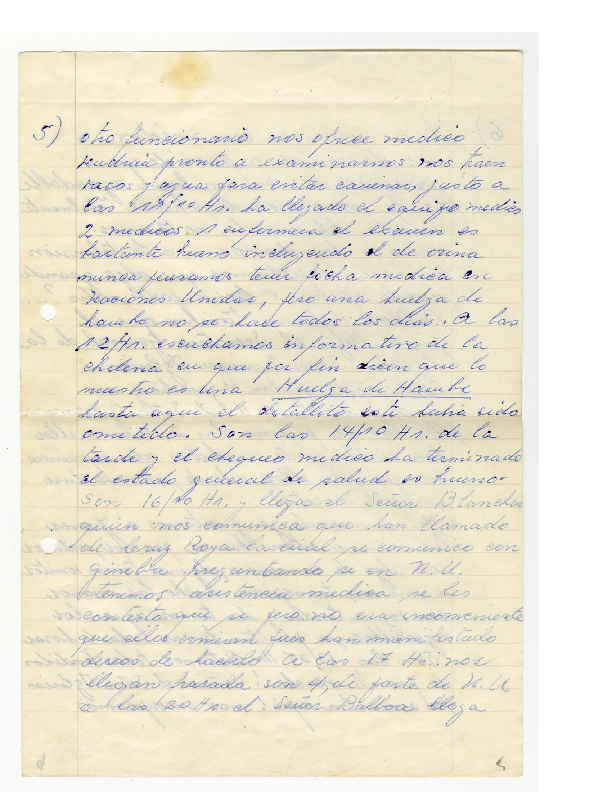 5) otro funcionario nos ofrece medico
vendran pronto a examinarnos nos traen
vasos y agua para evitar caminar, justo a
las 11/10 Hr. ha llegado el equipo medico
2 medicos 1 enfermera el examen es
bastante bueno incluyendo el de orina
nunca pensamos tener ficha medica en
Naciones Unidas, pero una huelga de
hambre no se hace todos los dias. A las
12/Hr. escuchamos informativo de la
chilena en que por fin dicen que lo
nuestro es una Huelga de Hambre
hasta aqui el detallito este habia sido
omitido. Son las 14/10 Hr. de la
tarde y el chequeo medico ha terminado
el estado general de salud es bueno.
Son 16/20 Hr. y llega el Señor Blancher
quien nos comunica que han llamado
de Cruz Roja la cual se comunico con
Ginebra preguntando si en N.U.
tenemos asistencia medica, se les
contesto que si pero no era inconveniente
que ellos vinieran pues han manifestado
deseos de hacerlo. A las 17 Hr. nos
llegan frazada son 4 de parte de N.U
a las 20 Hr el Señor Balboa llega